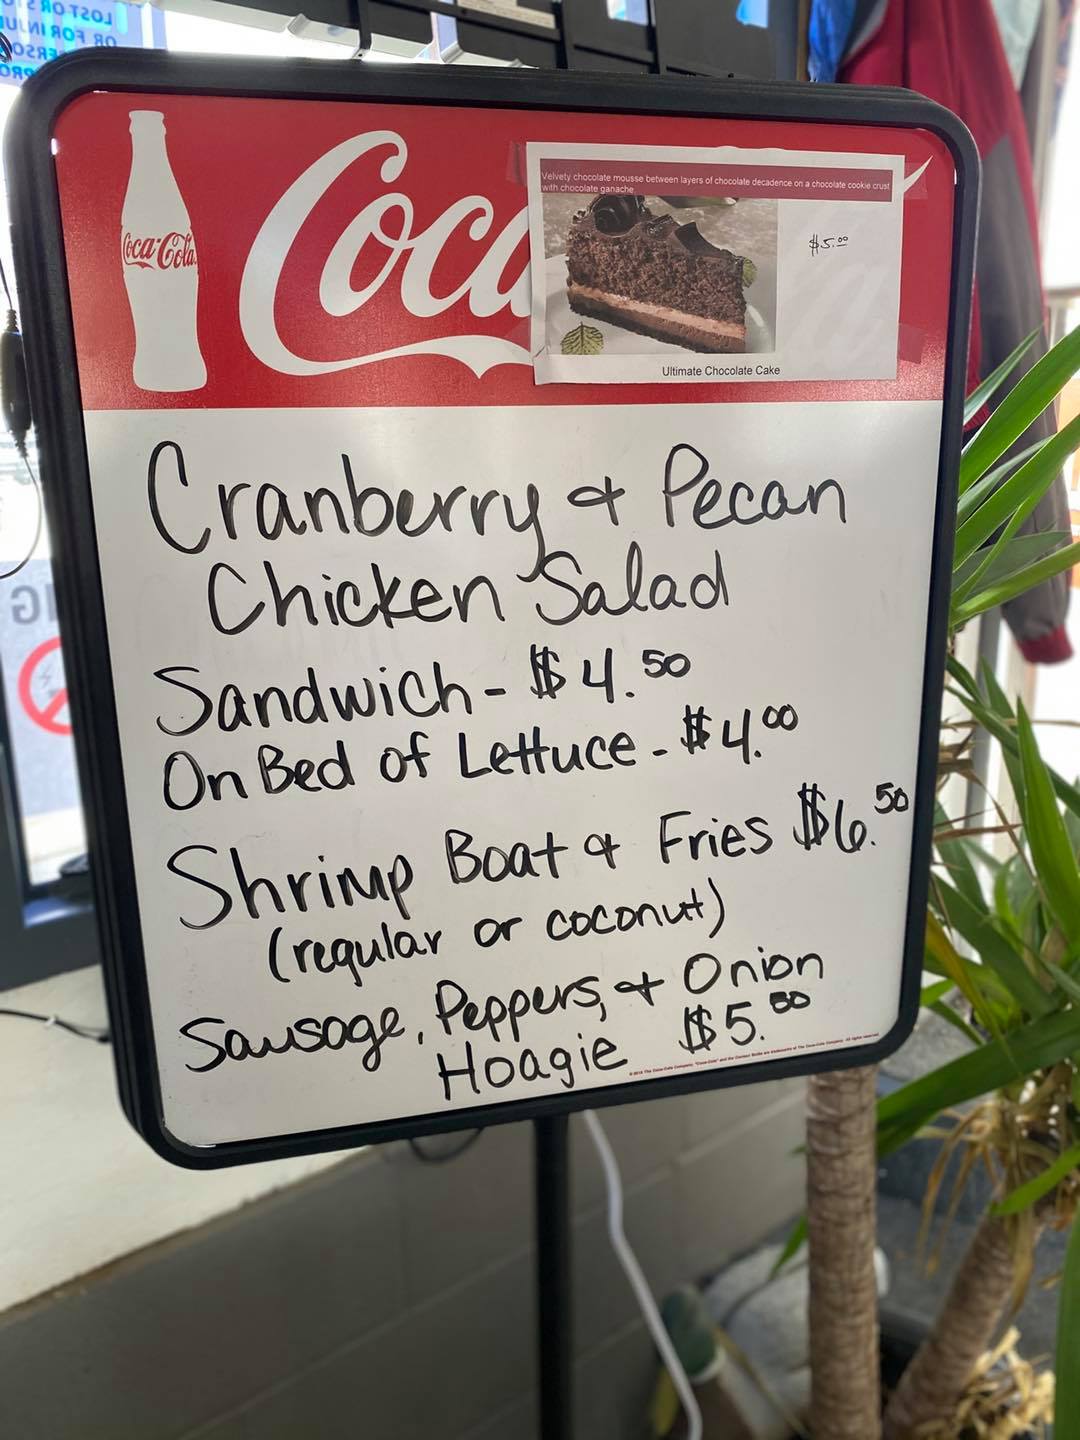 LOST OR
OR FOR INJU
Coca-Cola
Coca
Velvety chocolate mousse between layers of chocolate decadence on a chocolate cookie crust
with chocolate ganache
$5.00
Ultimate Chocolate Cake
Cranberry & Pecan
Chicken Salad
Sandwich - $4.50
On Bed of Lettuce - $4.00
Shrimp Boat & Fries $6.50
(regular or coconut)
Sausage, Peppers, & Onion
Hoagie $5.00